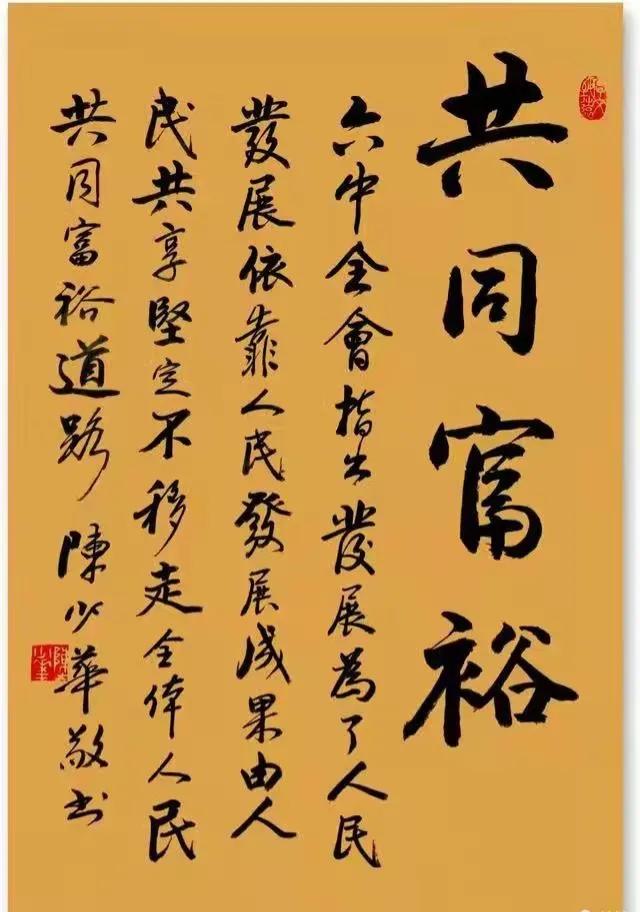 共同富裕
六中全會指出發展為了人民
發展依靠人民發展成果由人
民共享堅定不移走全体人民
共同富裕道路 陳少華敬书